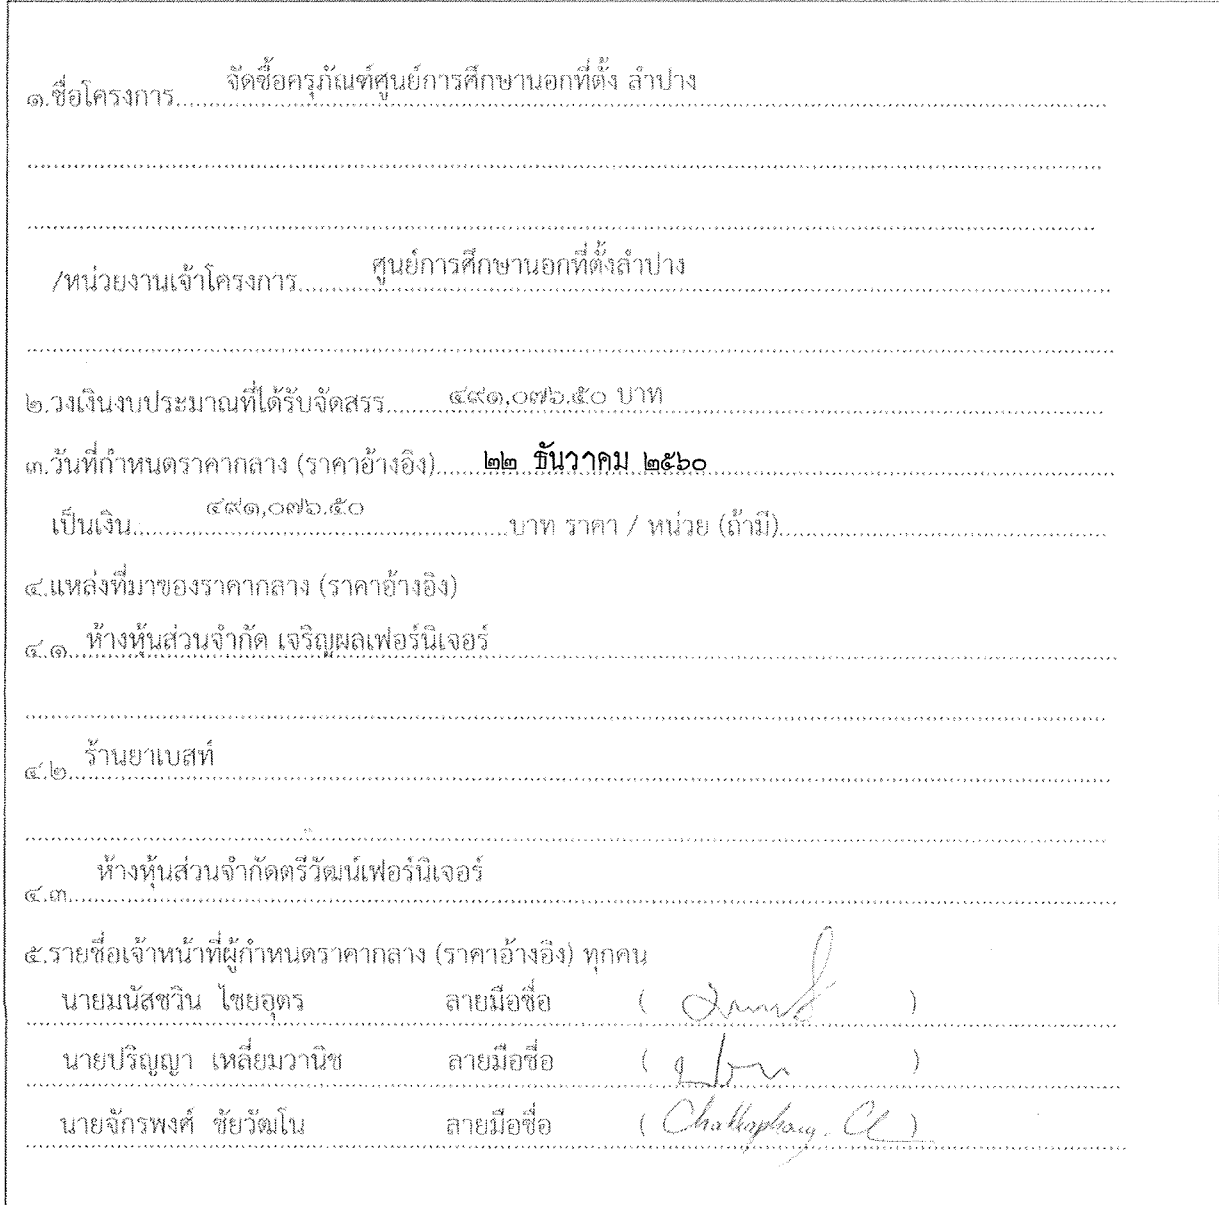 ๑.ชื่อโครงการ จัดซื้อครุภัณฑ์ศูนย์การศึกษานอกที่ตั้ง ลำปาง
/หน่วยงานเจ้าโครงการ ศูนย์การศึกษานอกที่ตั้งลำปาง
๒.วงเงินงบประมาณที่ได้รับจัดสรร ๔๙๑,๐๗๖.๕๐ บาท
๓.วันที่กำหนดราคากลาง (ราคาอ้างอิง) ๒๒ ธันวาคม ๒๕๖๐
เป็นเงิน ๔๙๑,๐๗๖.๕๐ บาท ราคา / หน่วย (ถ้ามี)
๔.แหล่งที่มาของราคากลาง (ราคาอ้างอิง)
๔.๑ ห้างหุ้นส่วนจำกัด เจริญผลเฟอร์นิเจอร์
๔.๒ ร้านยาเบสท์
๔.๓ ห้างหุ้นส่วนจำกัดตรีวัฒน์เฟอร์นิเจอร์
๕.รายชื่อเจ้าหน้าที่ผู้กำหนดราคากลาง (ราคาอ้างอิง) ทุกคน
นายมนัสชวิน ไชยอุตร ลายมือชื่อ ( )
นายปริญญา เหลี่ยมวานิช ลายมือชื่อ ( )
นายจักรพงศ์ ชัยวัฒโน ลายมือชื่อ ( )